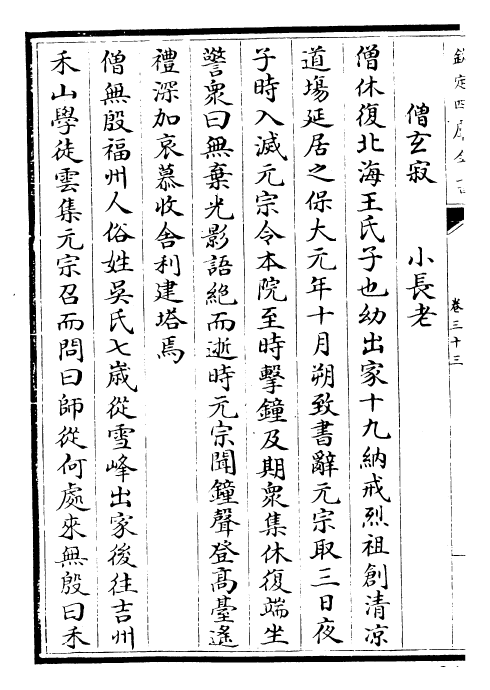 欽定四庫全書
卷三十三
僧玄寂 小長老
僧休復北海王氏子也幼出家十九納戒烈祖創清涼
道場延居之保大元年十月朔致書辭元宗取三日夜
子時入滅元宗令本院至時擊鐘及期衆集休復端坐
警衆曰無棄光影語絶而逝時元宗聞鐘聲登高臺遙
禮深加哀慕收舍利建塔焉
僧無殷福州人俗姓吳氏七歲從雪峰出家後往吉州
禾山學徒雲集元宗召而問曰師從何處來無殷曰禾